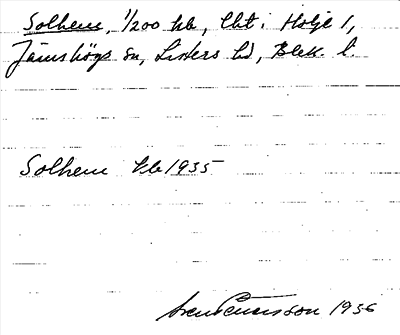 Solhem, 1/200 kb, lht i Holje 1,
Jämshögs sn, Listers hd, Blek. l.
Solhem kb 1935
Sven Benson 1936